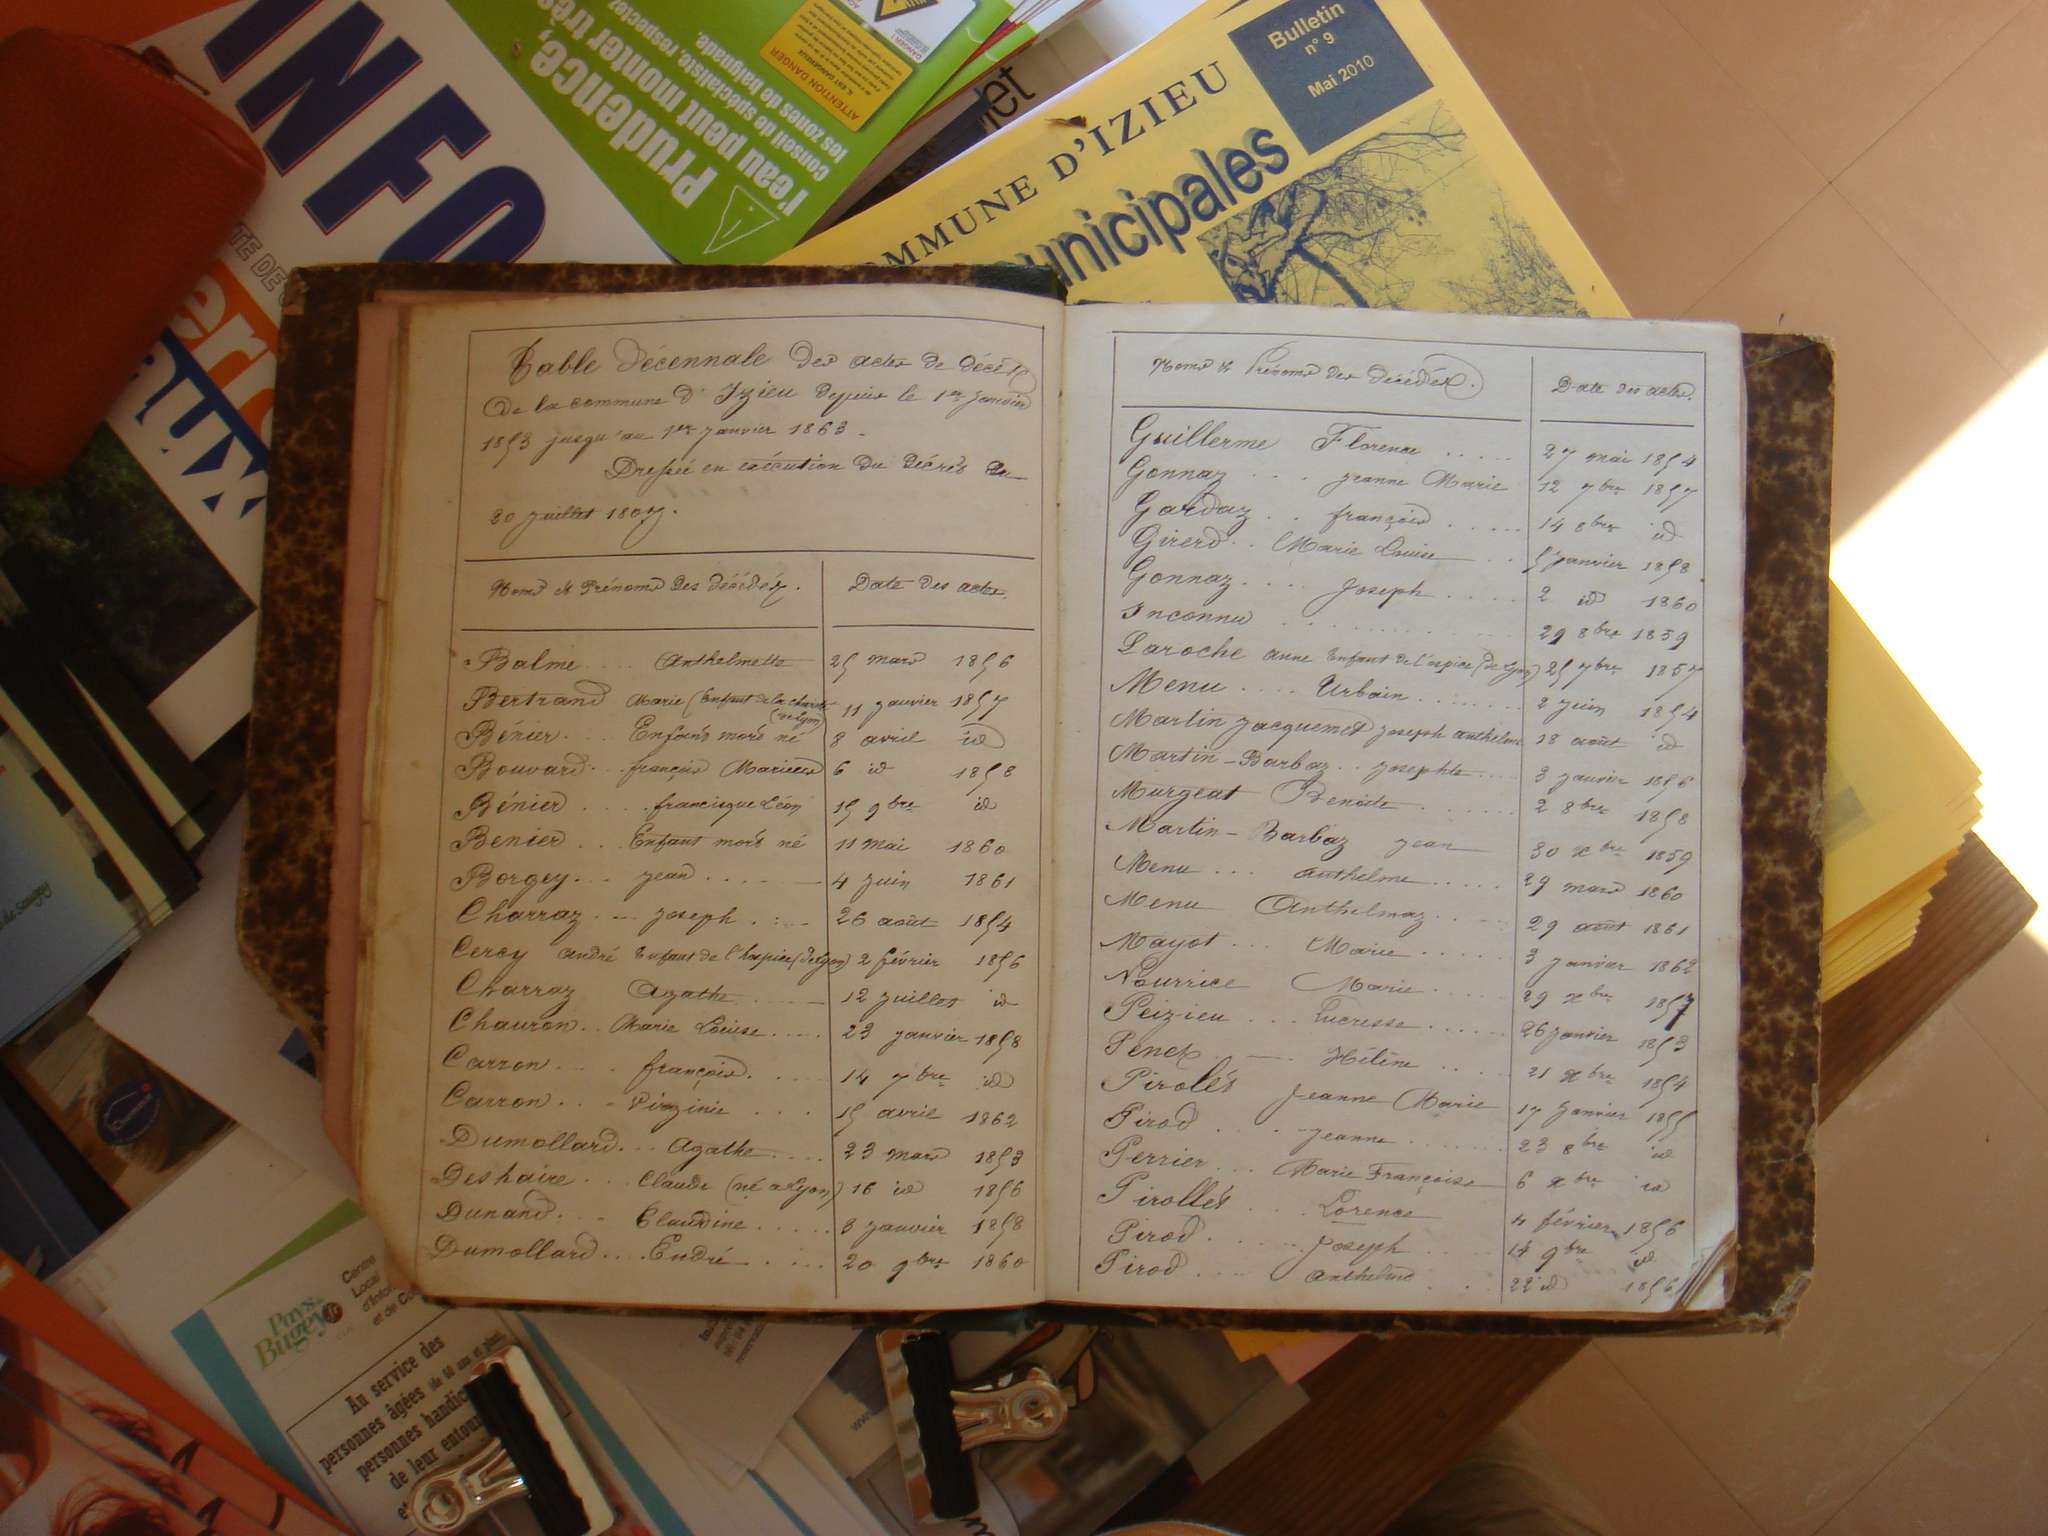 INFO
Prudence,
l'eau peut monter très
conseil de spécialiste, respectez
les zones de baignade.
ATTENTION DANGER
Bulletin
n° 9
Mai 2010
COMMUNE D'IZIEU
unicipales
Table décennale des actes de décès
de la commune d'Izieu depuis le 1er Janvier
1853 jusqu'au 1er janvier 1863.
Dressée en exécution du décrès du
20 juillet 1807.
Noms & Prénoms des décédés. Date des actes.
Balme .... Anthelmette 25 mars 1856
Bertrand Marie (Enfant de la charité 11 janvier 1857
(de Lyon)
Bénier .... Enfant mort né 8 avril id
Bouvard ... françois Marie 6 id 1858
Bénier .... francisque Léon 15 9bre id
Benier ... Enfant mort né 11 mai 1860
Borgey ... jean .... 4 juin 1861
Charraz ... joseph ... 26 août 1854
Cercy andré Enfant de l'hospice (de Lyon) 2 février 1856
Charraz Agathe .... 12 juillet id
Chauron .. Marie Louise .... 23 janvier 1858
Carron .... françois .... 14 7bre id
Carron ... Virginie .... 15 avril 1862
Dumollard ... Agathe .... 23 mars 1853
Deshaire ... Claude (né à Lyon) 16 id 1856
Dunand ... Claudine ..... 3 janvier 1858
Dumollard .... André .... 20 9bre 1860
Noms & Prénoms des décédés. Date des actes.
Guillerme Florence ..... 27 mai 1854
Gonnaz ... jeanne Marie 12 7bre 1857
Gardaz .. françois ..... 14 8bre id
Girerd .. Marie Louise .. 5 janvier 1858
Gonnaz .... Joseph .... 2 id 1860
Inconnu .......... 29 8bre 1859
Laroche anne Enfant de l'ospice (de Lyon) 25 7bre 1857
Menu .... Urbain ....... 2 juin 1854
Martin jacquemet joseph anthelme 18 août id
Martin-Barbaz .. josephte .... 3 janvier 1856
Murgeat Benoite ...... 2 8bre 1858
Martin-Barbaz jean 30 xbre 1859
Menu ... anthelme ..... 29 mars 1860
Menu Anthelmaz .... 29 août 1861
Mayot ... Marie ..... 3 janvier 1862
Nourrice Marie ..... 29 xbre 1857
Peizieu ... Lucresse ..... 26 janvier 1853
Penet .... Hélène ..... 21 xbre 1854
Pirolet Jeanne Marie 17 Janvier 1855
Pirod .... jeanne ...... 23 8bre id
Perrier ... Marie Françoise 6 xbre id
Pirollet .... Lorence 4 février 1856
Pirod ..... Joseph .... 14 9bre id
Pirod .... anthelme .. 22 id 1856
Pays
Bugey
Centre
Local
d'Infor
et de Co
Au service des
personnes âgées de 60 ans et plus
personnes handic
de leur entour